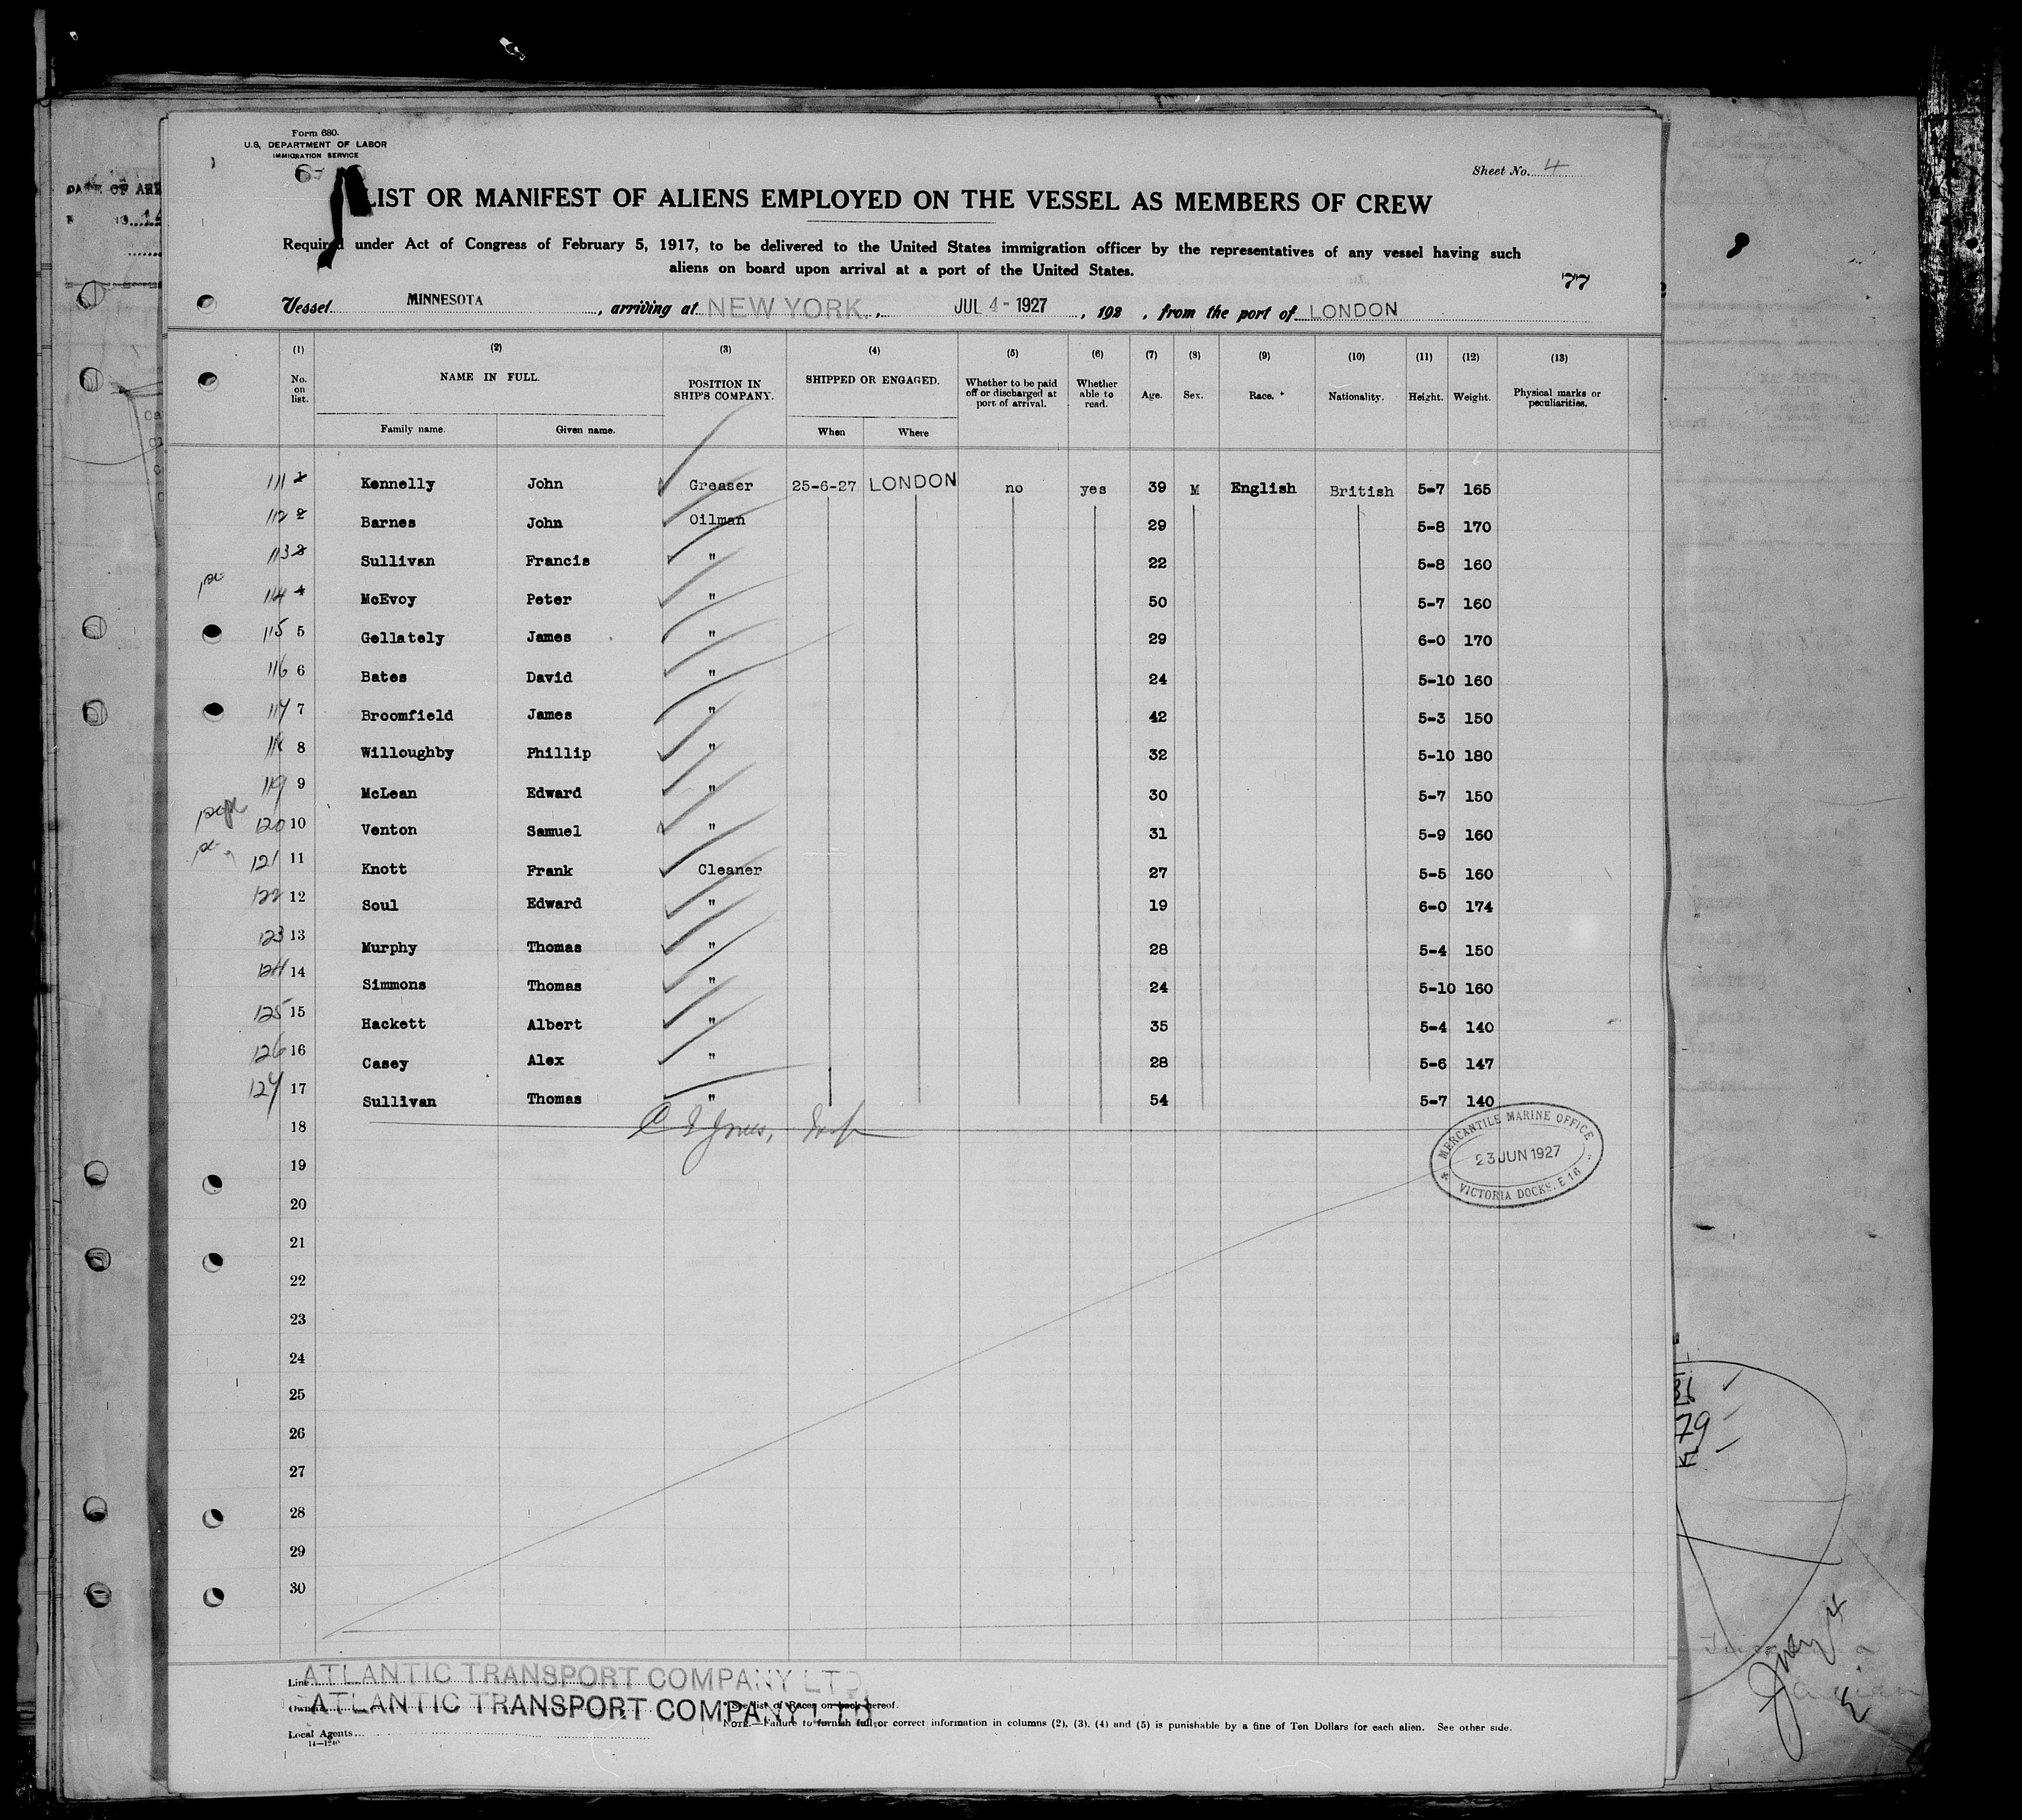 Form 680.
U.S. DEPARTMENT OF LABOR
IMMIGRATION SERVICE
Sheet No. 4
LIST OR MANIFEST OF ALIENS EMPLOYED ON THE VESSEL AS MEMBERS OF CREW
Required under Act of Congress of February 5, 1917, to be delivered to the United States immigration officer by the representatives of any vessel having such
aliens on board upon arrival at a port of the United States.
77
Vessel MINNESOTA, arriving at NEW YORK, JUL 4-1927, 192 , from the port of LONDON
(1) (2) (3) (4) (5) (6) (7) (8) (9) (10) (11) (12) (13)
No. on list. NAME IN FULL. POSITION IN SHIP'S COMPANY. SHIPPED OR ENGAGED. Whether to be paid off or discharged at port of arrival. Whether able to read. Age. Sex. Race.* Nationality. Height. Weight. Physical marks or peculiarities.
Family name. Given name. When Where
111 1 Kennelly John Greaser 25-6-27 LONDON no yes 39 M English British 5-7 165
112 2 Barnes John Oilman 29 5-8 170
113 3 Sullivan Francis " 22 5-8 160
114 4 McEvoy Peter " 50 5-7 160
115 5 Gellately James " 29 6-0 170
116 6 Bates David " 24 5-10 160
117 7 Broomfield James " 42 5-3 150
118 8 Willoughby Phillip " 32 5-10 180
119 9 McLean Edward " 30 5-7 150
120 10 Venton Samuel " 31 5-9 160
121 11 Knott Frank Cleaner 27 5-5 160
122 12 Soul Edward " 19 6-0 174
123 13 Murphy Thomas " 28 5-4 150
124 14 Simmons Thomas " 24 5-10 160
125 15 Hackett Albert " 35 5-4 140
126 16 Casey Alex " 28 5-6 147
127 17 Sullivan Thomas " 54 5-7 140
18
MERCANTILE MARINE OFFICE
23 JUN 1927
VICTORIA DOCKS. E 16
19
20
21
22
23
24
25
26
27
28
29
30
Line ATLANTIC TRANSPORT COMPANY LTD
Owners ATLANTIC TRANSPORT COMPANY LTD
* See list of Races on back hereof.
Local Agents
NOTE.—Failure to furnish full or correct information in columns (2), (3), (4) and (5) is punishable by a fine of Ten Dollars for each alien. See other side.
14—1240